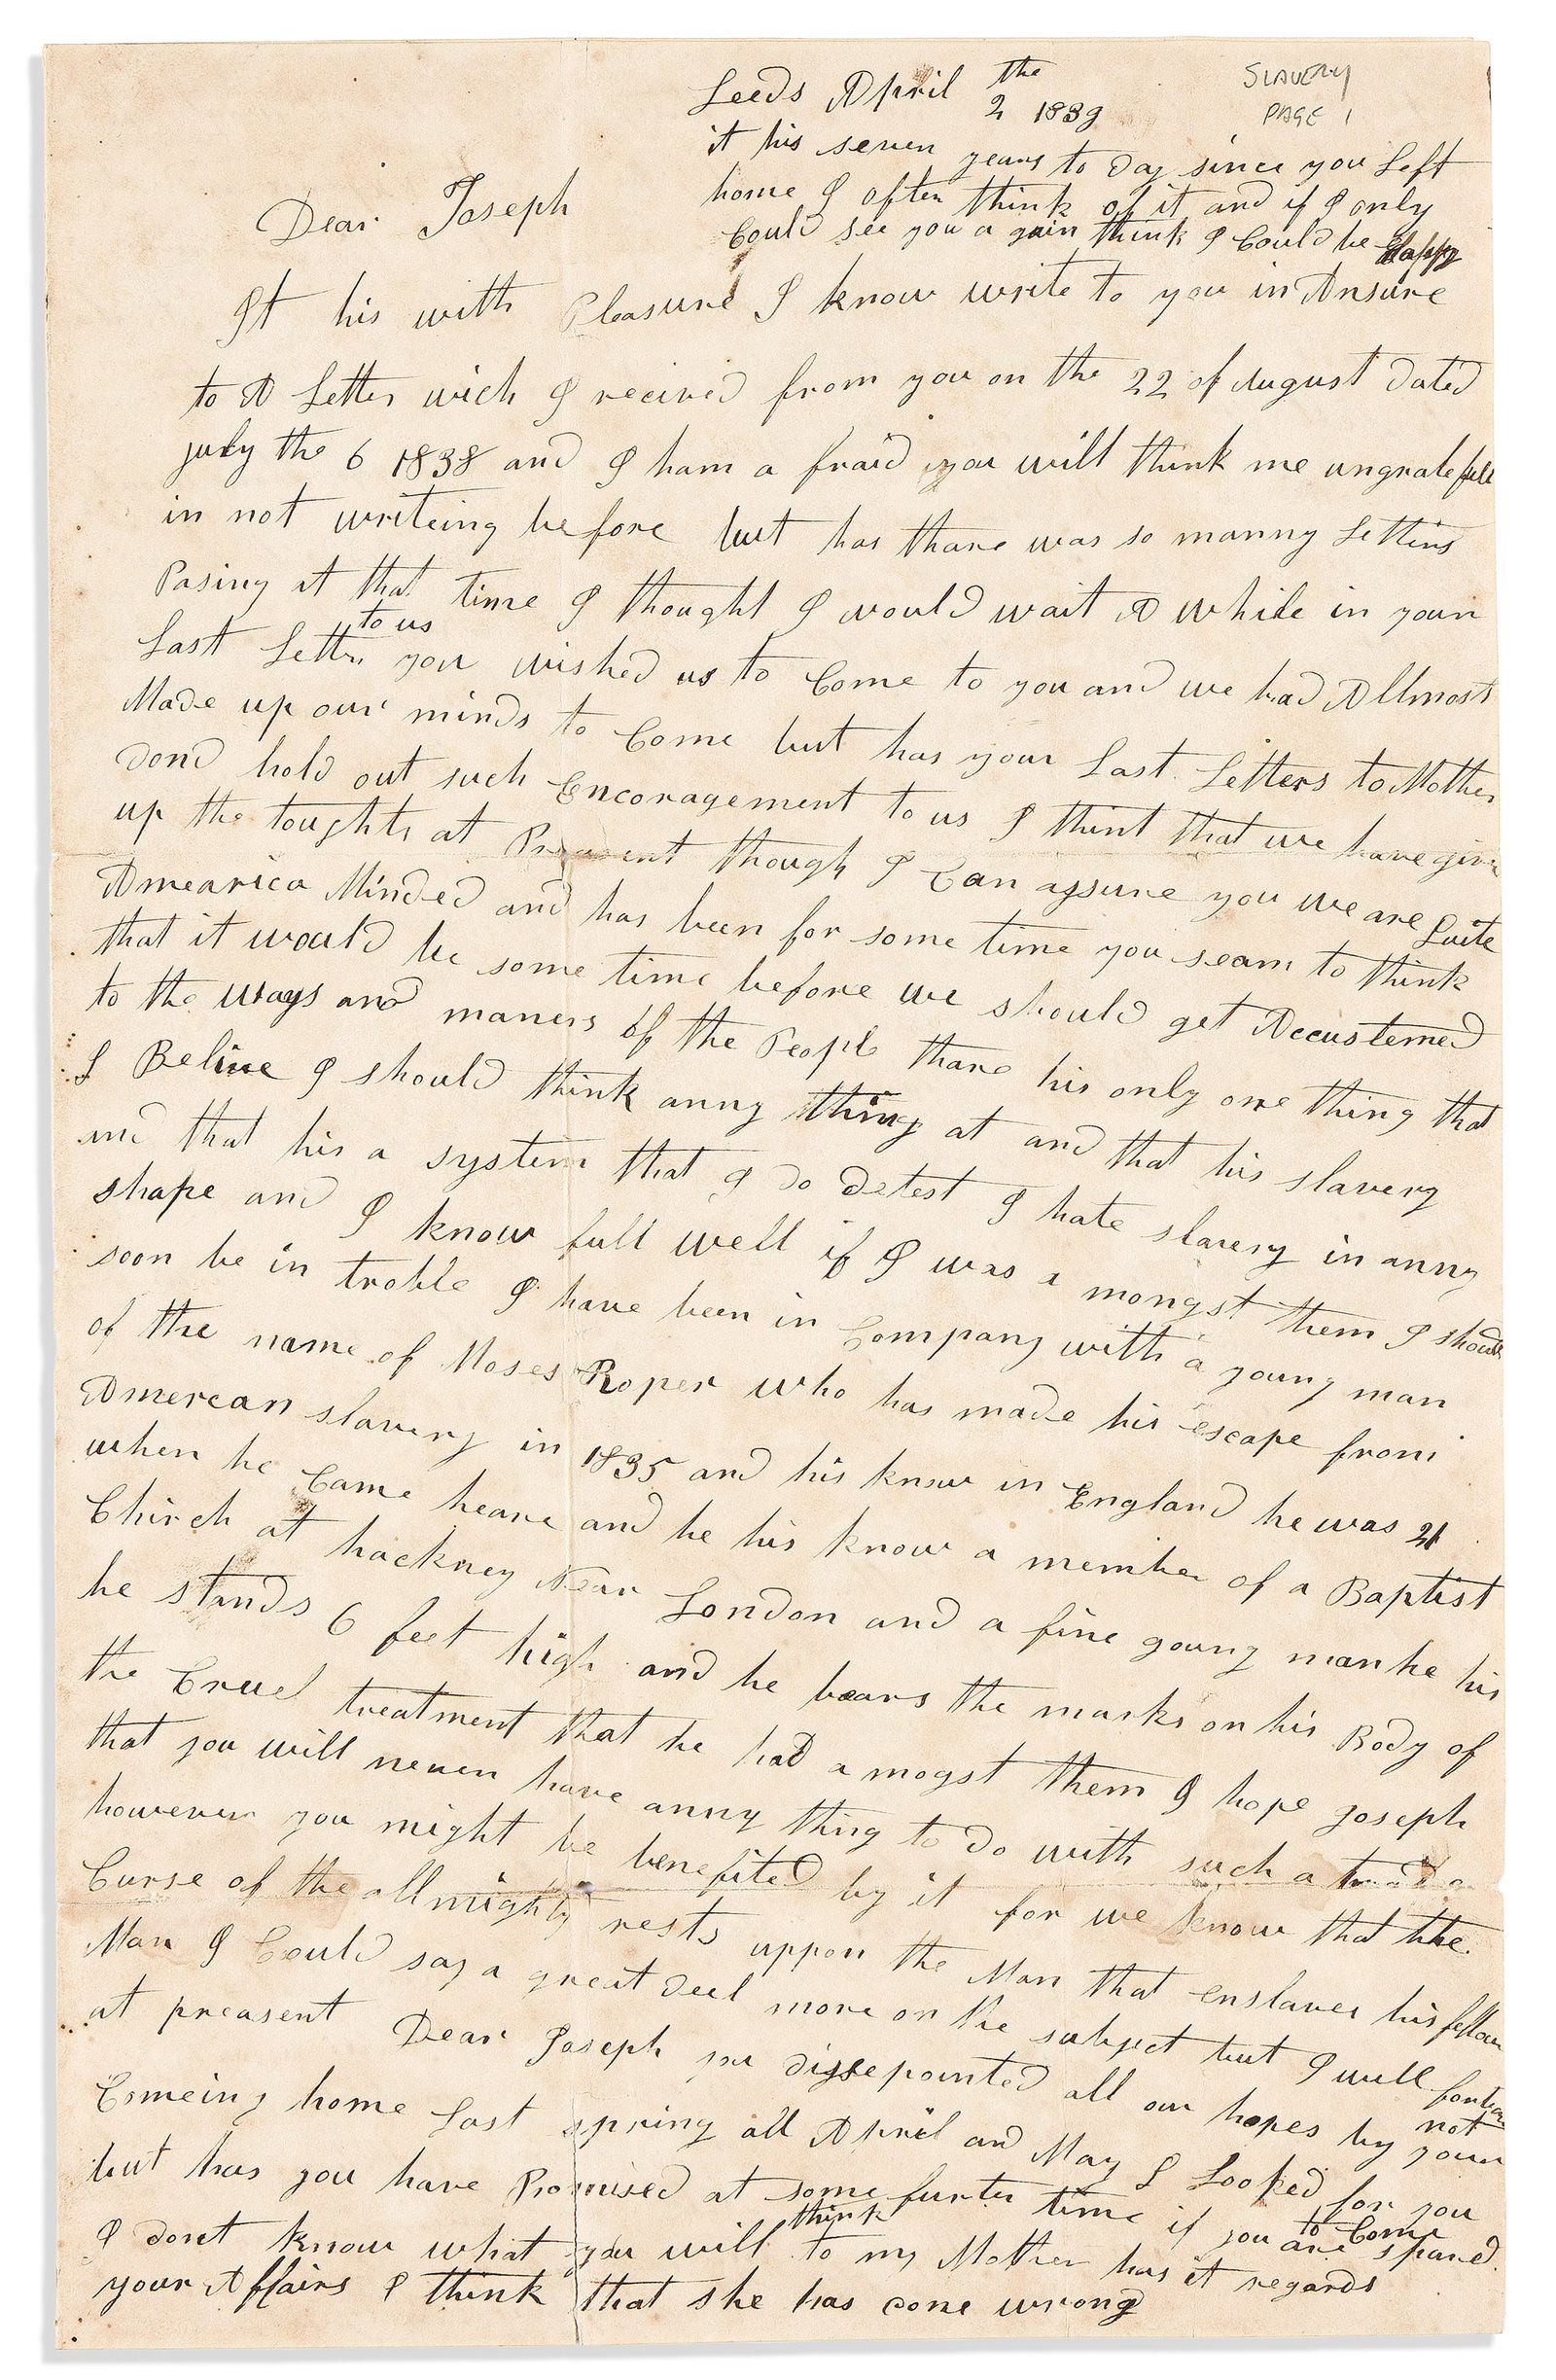 Leeds April the 2 1839
SLAVERY
PAGE 1
it his seven years to day since you Left
home I often think of it and if I only
Could see you a gain think I Could be Happy
Dear Joseph
It his with Pleasure I know write to you in Ansure
to A Letter wich I recived from you on the 22 of August dated
july the 6 1838 and I ham a fraid you will think me ungratefull
in not writeing before but has thare was so manny Letters
Pasing at that time I thought I would wait A while in your
Last Letter to us you wished us to Come to you and we had Allmost
Made up our minds to Come but has your Last Letters to Mother
dond hold out such Encoragement to us I thint that we have give
up the toughts at Preasent though I Can assure you we are Quite
Amearica Minded and has been for some time you seam to think
that it would be some time before we should get Accustemed
to the ways and maners of the Peopl thare his only one thing that
I Belive I should think anny thing at and that his slavery
and that his a system that I do detest I hate slavery in anny
shape and I know full well if I was a mongst them I should
soon be in troble I have been in Company with a young man
of the name of Moses Roper who has made his escape from
Amerean slavery in 1835 and his know in England he was 21
when he Came heare and he his know a member of a Baptist
Chirch at hackney Near London and a fine young man he his
he stands 6 feet high and he bears the marks on his Body of
the Cruel treatment that he had amogst them I hope Joseph
that you will never have anny thing to do with such a trade
however you might be benefited by it for we know that the
Curse of the allmighty rests uppon the Man that enslaves his fellow
Man I Could say a great deel more on the subject but I will forbear
at preasent Dear Joseph you dissepointed all our hopes by your not
Comeing home Last spring all April and May I Looked for you
but has you have Promised at some furter time if you are spared to Come
I dont know what you will think to my Mother has it regards
your Affairs I think that she has done wrong